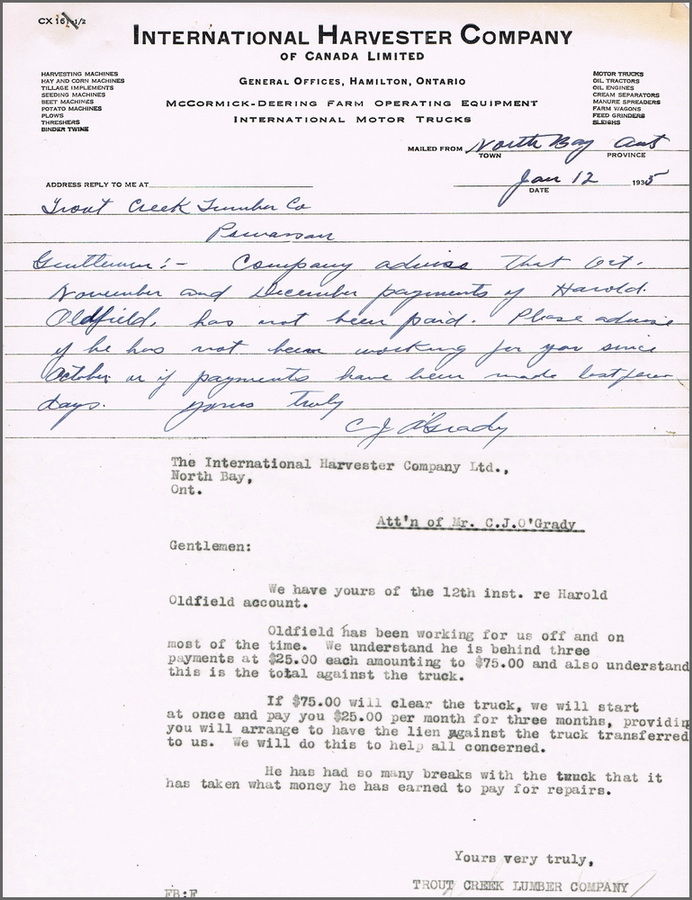 CX 161-1/2
INTERNATIONAL HARVESTER COMPANY
OF CANADA LIMITED
GENERAL OFFICES, HAMILTON, ONTARIO
MCCORMICK-DEERING FARM OPERATING EQUIPMENT
INTERNATIONAL MOTOR TRUCKS
HARVESTING MACHINES
HAY AND CORN MACHINES
TILLAGE IMPLEMENTS
SEEDING MACHINES
BEET MACHINES
POTATO MACHINES
PLOWS
THRESHERS
BINDER TWINE
MOTOR TRUCKS
OIL TRACTORS
OIL ENGINES
CREAM SEPARATORS
MANURE SPREADERS
FARM WAGONS
FEED GRINDERS
SLEIGHS
MAILED FROM North Bay Ont
TOWN PROVINCE
Jan 12 1935
DATE
ADDRESS REPLY TO ME AT
Trout Creek Lumber Co
Powassan
Gentlemen:- Company advise that Oct.
November and December payments of Harold
Oldfield, has not been paid. Please advise
if he has not been working for you since
October or if payments have been made last few
days. Yours truly
C J O'Grady
The International Harvester Company Ltd.,
North Bay,
Ont.
Att'n of Mr. C.J.O'Grady
Gentlemen:
We have yours of the 12th inst. re Harold
Oldfield account.
Oldfield has been working for us off and on
most of the time. We understand he is behind three
payments at $25.00 each amounting to $75.00 and also understand
this is the total against the truck.
If $75.00 will clear the truck, we will start
at once and pay you $25.00 per month for three months, providing
you will arrange to have the lien against the truck transferred
to us. We will do this to help all concerned.
He has had so many breaks with the truck that it
has taken what money he has earned to pay for repairs.
Yours very truly,
TROUT CREEK LUMBER COMPANY
FB:F